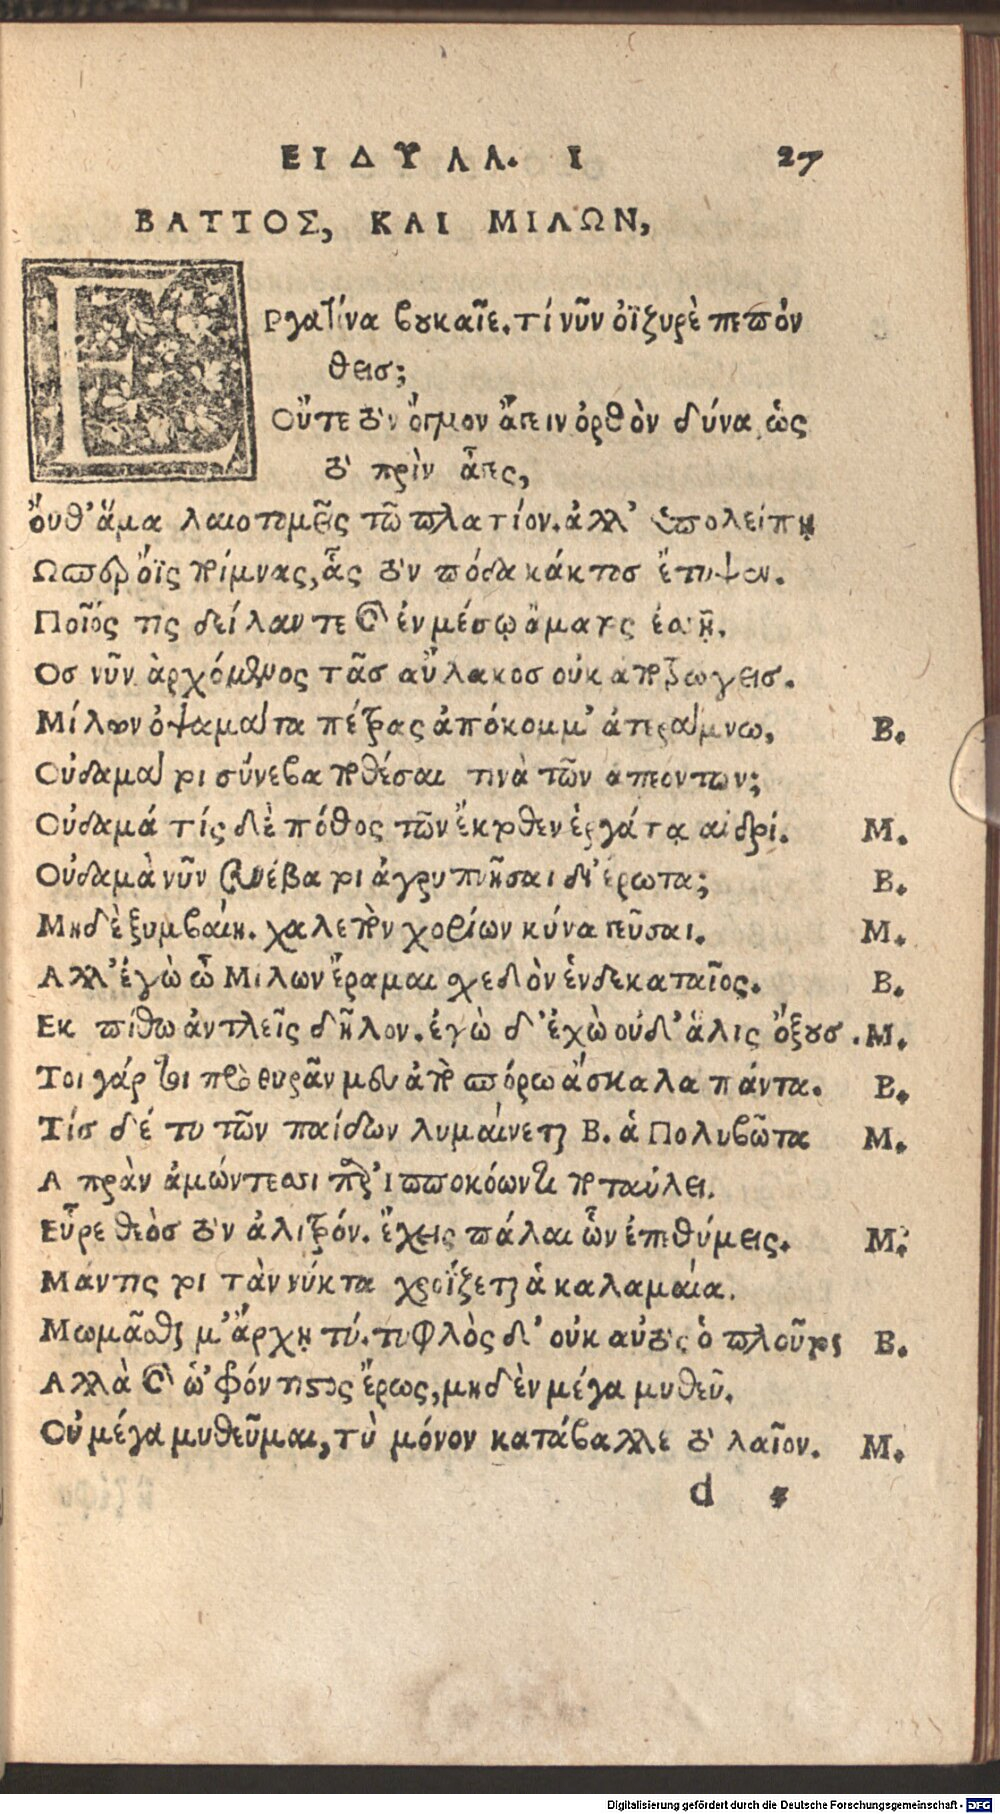 ΕΙΔΥΛΛ. Ι 27
ΒΑΤΤΟΣ, ΚΑΙ ΜΙΛΩΝ,
Εργατίνα βουκαῖε. τί νῦν ὀϊζυρὲ πεπόν
θεις;
Οὔτε τὸν ὄγμον ἄγειν ὀρθὸν δύνᾳ, ὡς
τὸ πρὶν ἆγες,
ὄυθ' ἅμα λαιοτομεῖς τῶ πλατίον. ἀλλ' ἀπολείπῃ
Ωσπερ ὄϊς ποίμνας, ἇς τὸν πόδα κάκτος ἔτυψεν.
Ποῖός τις δείλαν τε καὶ ἐν μέσῳ ἄματος ἐσσῆ.
Ος νῦν ἀρχόμενος τᾶς αὔλακος οὐκ ἀποτρώγεις.
Μίλων ὀψαμᾶτα πέτρας ἀπόκομμ' ἀτεράμνω, Β.
Οὐδαμά τοι σύνεβα ποθέσαι τινὰ τῶν ἀπεόντων;
Οὐδαμά τίς δὲ πόθος τῶν ἔκτοθεν ἐργάτᾳ ἀνδρί. Μ.
Οὐδαμὰ νῦν συνέβα τοι ἀγρυπνῆσαι δι' ἔρωτα; Β.
Μηδὲ ξυμβαίη. χαλεπὸν χορίων κύνα γεῦσαι. Μ.
Αλλ' ἐγὼ ὦ Μίλων ἔραμαι σχεδὸν ἑνδεκαταῖος. Β.
Εκ πίθω ἀντλεῖς δῆλον. ἐγὼ δ' ἐχὼ οὐδ' ἅλις ὄξους. Μ.
Τοιγάρτοι πρὸ θυρᾶν μευ ἀπὸ σπόρω ἄσκαλα πάντα. Β.
Τίς δέ τυ τῶν παίδων λυμαίνεται Β. ἁ Πολυβῶτα Μ.
Α πρὰν ἀμώντεσσι παρ' Ἱπποκόωντι ποταύλει.
Εὗρε θεὸς τὸν ἀλιτρόν. ἔχεις πάλαι ὧν ἐπεθύμεις. Μ.
Μάντις τοι τὰν νύκτα χροΐξεται ἁ καλαμαία.
Μωμᾶσθαι μ' ἄρχῃ τύ. τυφλὸς δ' οὐκ αὐτὸς ὁ πλοῦτος Β.
Αλλὰ καὶ ὡ' φρόντιστος ἔρως, μηδὲν μέγα μυθεῦ.
Οὐ μέγα μυθεῦμαι, τὺ μόνον κατάβαλλε τὸ λαῖον. Μ.
d